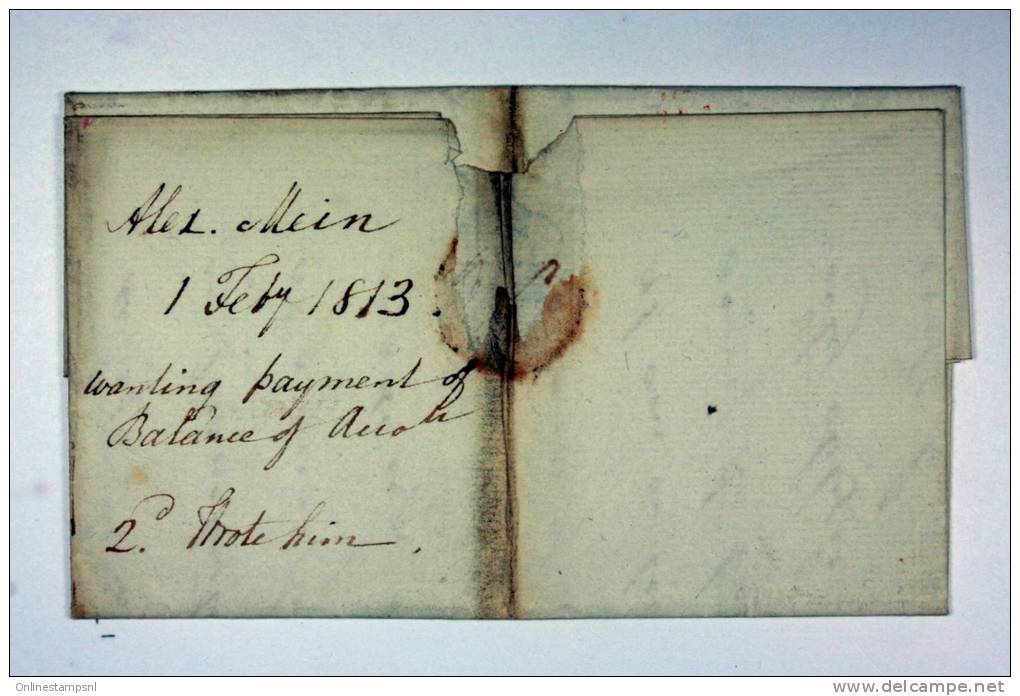 Alex. Mein
1 Feby 1813.
wanting payment of
Balance of Acco.tt
2.d Wrote him.
Onlinestampsnl
www.delcampe.net